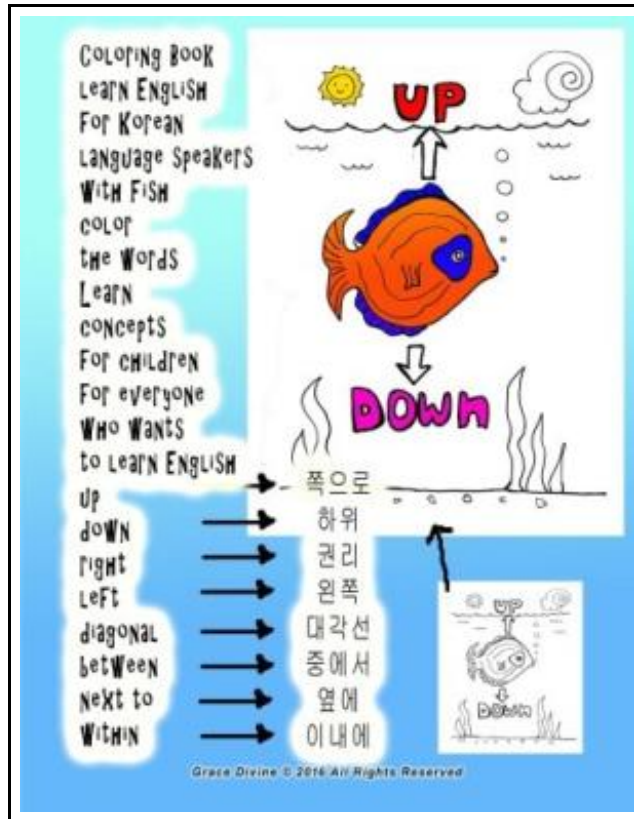 Coloring Book
Learn English
For Korean
Language Speakers
With Fish
color
the Words
Learn
concepts
For children
For everyone
Who Wants
to learn English
up
down
right
left
diagonal
between
Next to
Within
쪽으로
하위
권리
왼쪽
대각선
중에서
옆에
이내에
UP
DOWN
UP
DOWN
Grace Divine © 2016 All Rights Reserved